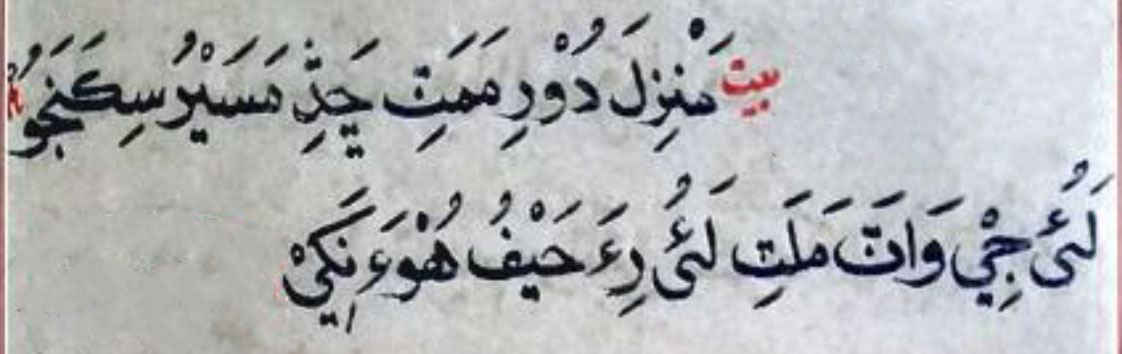 بيت مَنْزِلَ دُوْرِ مَمَتِ چَڍِّ مَسَيْرُ سِکَنجَو
لَئُى جِيْ وَاتَ مَلَتِ لَئُى رِءَ حَيْفُ هُوْءَ نِکَيْ